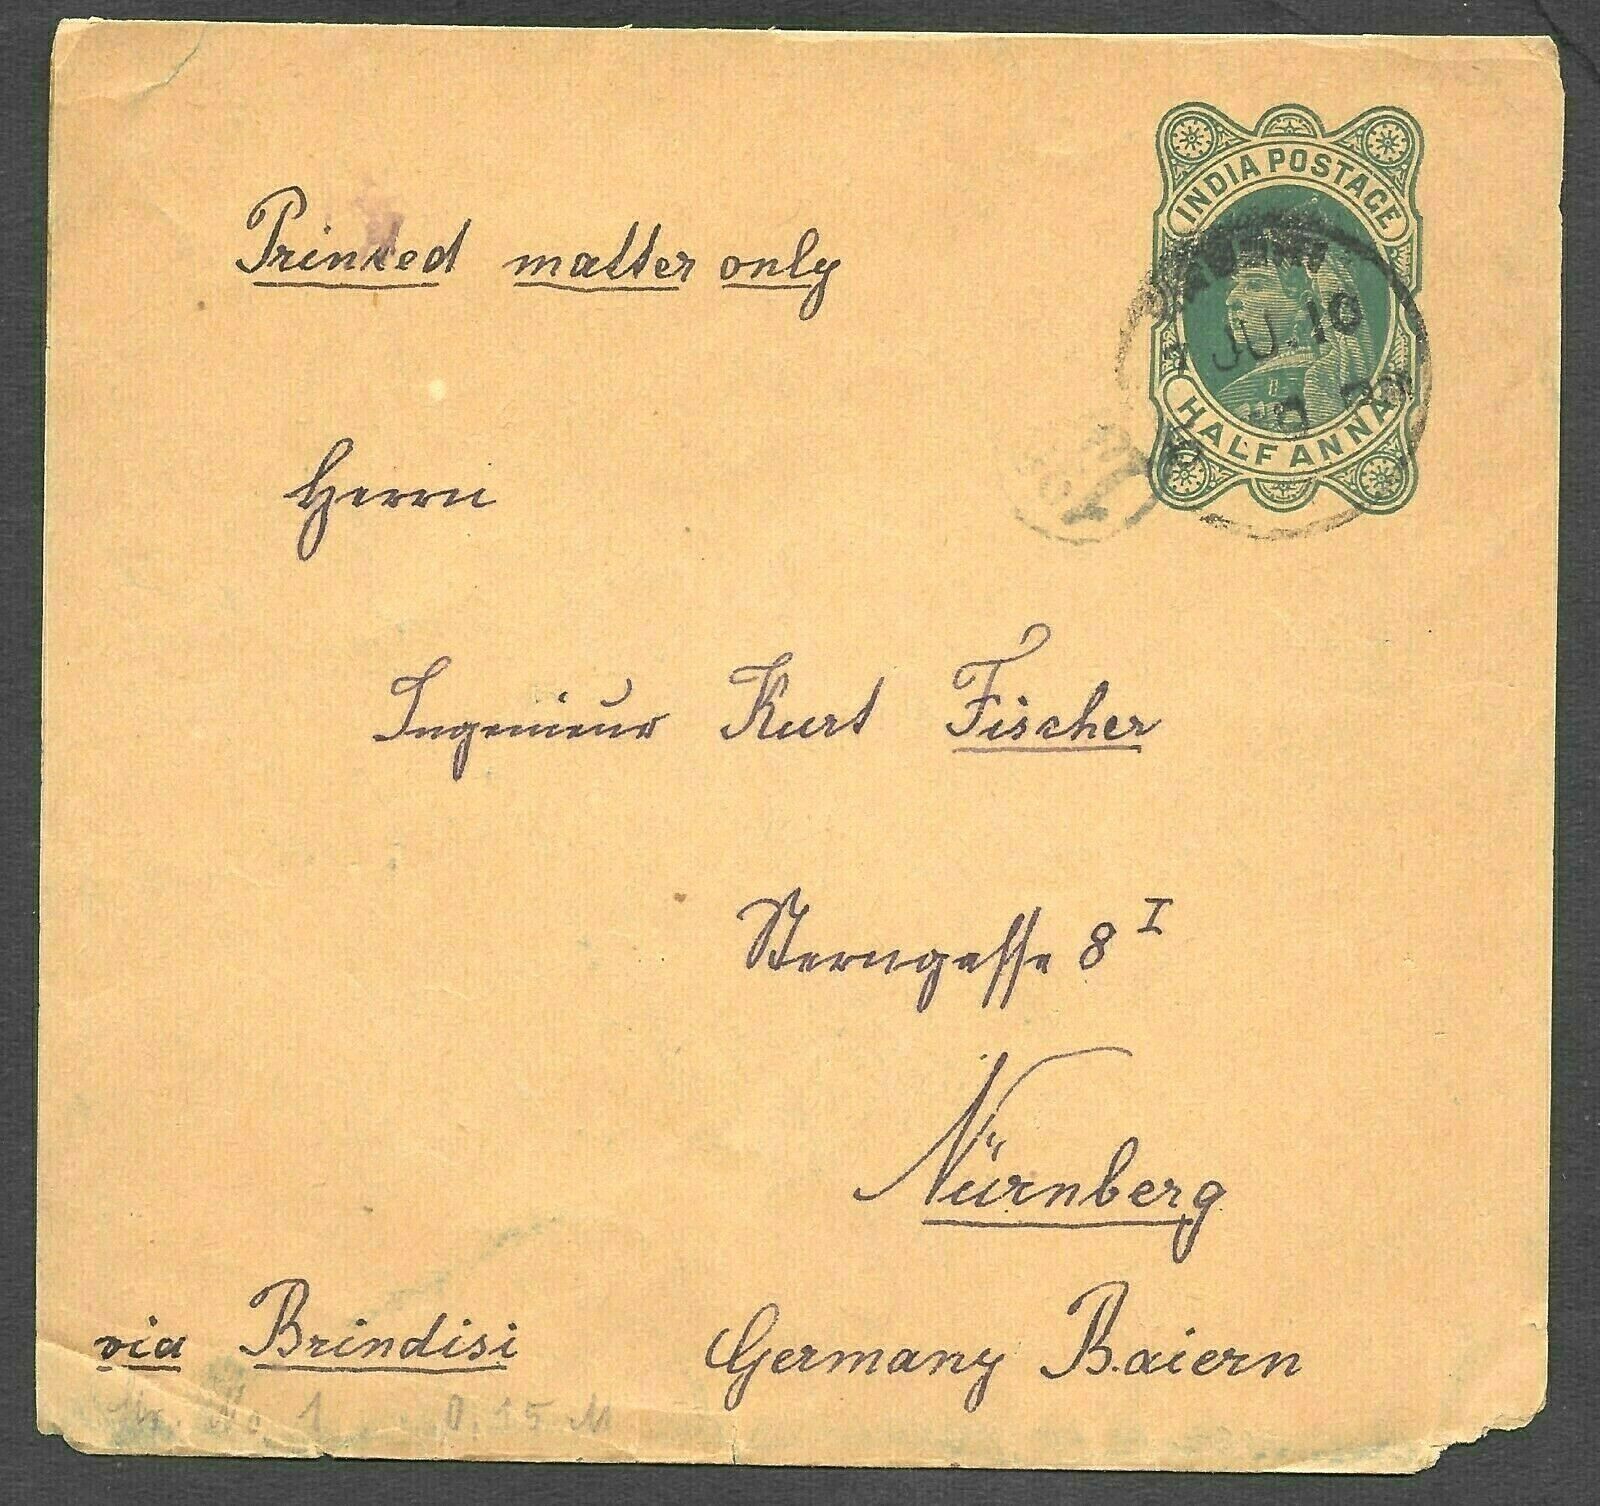 INDIA POSTAGE
JU. 10
HALF ANNA
Printed matter only
Herrn
Ingenieur Kurt Fischer
Sterngasse 8 I
Nürnberg
via Brindisi Germany Baiern
No. 1 0.15 M